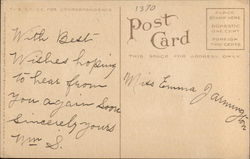 THIS SPACE FOR CORRESPONDENCE
1370
Post
Card
THIS SPACE FOR ADDRESS ONLY
PLACE
STAMP HERE
DOMESTIC
ONE CENT
FOREIGN
TWO CENTS
With Best
Wishes hoping
to hear from
you again soon
Sincerely yours
Wm S.
Miss Emma Jarmington